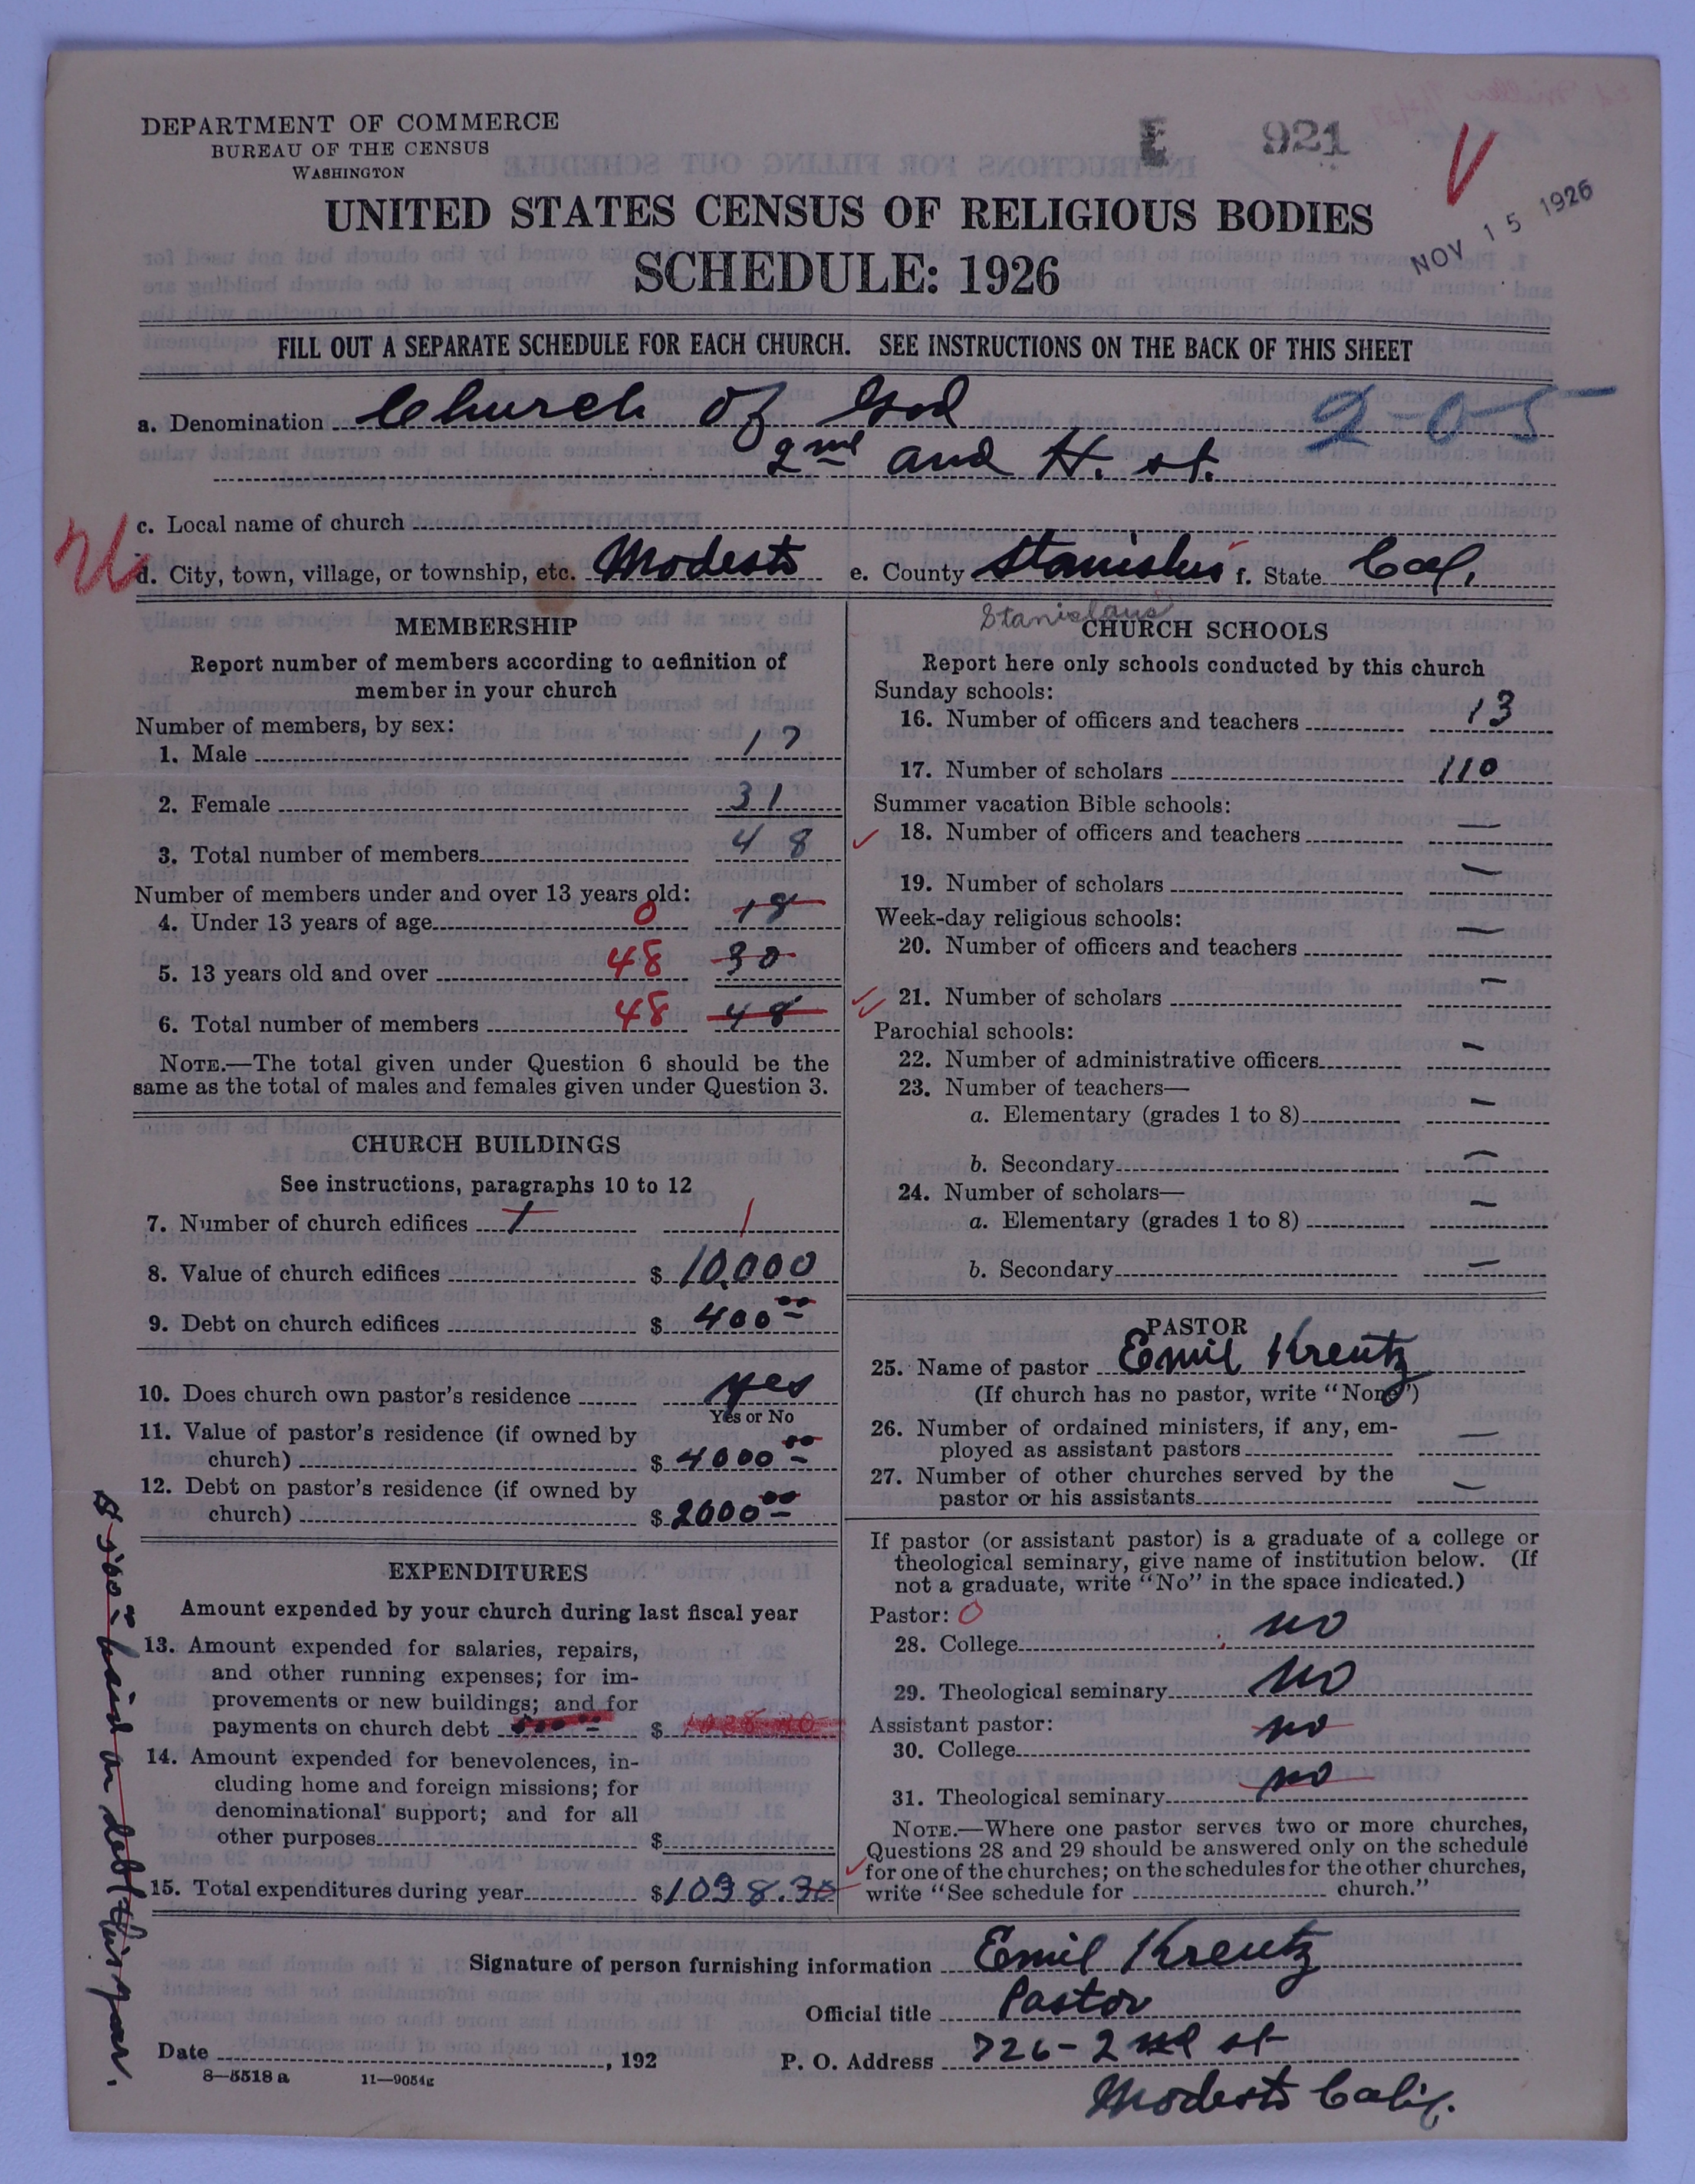 DEPARTMENT OF COMMERCE
BUREAU OF THE CENSUS
WASHINGTON
E 921
NOV 15 1926
UNITED STATES CENSUS OF RELIGIOUS BODIES
SCHEDULE: 1926
FILL OUT A SEPARATE SCHEDULE FOR EACH CHURCH. SEE INSTRUCTIONS ON THE BACK OF THIS SHEET
a. Denomination Church of God 2-0-5
2nd and H. st.
c. Local name of church
d. City, town, village, or township, etc. Modesto e. County Stanislus f. State Cal.
Stanislaus
MEMBERSHIP
Report number of members according to definition of
member in your church
Number of members, by sex:
1. Male 17
2. Female 31
3. Total number of members 48
Number of members under and over 13 years old:
4. Under 13 years of age 0 18
5. 13 years old and over 48 30
6. Total number of members 48 48
NOTE.—The total given under Question 6 should be the
same as the total of males and females given under Question 3.
CHURCH BUILDINGS
See instructions, paragraphs 10 to 12
7. Number of church edifices 1 1
8. Value of church edifices $ 10,000
9. Debt on church edifices $ 400 00
10. Does church own pastor's residence yes
Yes or No
11. Value of pastor's residence (if owned by
church) $ 4000 00
12. Debt on pastor's residence (if owned by
church) $ 2000 00
EXPENDITURES
Amount expended by your church during last fiscal year
13. Amount expended for salaries, repairs,
and other running expenses; for im-
provements or new buildings; and for
payments on church debt $
14. Amount expended for benevolences, in-
cluding home and foreign missions; for
denominational support; and for all
other purposes $
15. Total expenditures during year $ 1038.30
paid on debt this year.
CHURCH SCHOOLS
Report here only schools conducted by this church
Sunday schools:
16. Number of officers and teachers 13
17. Number of scholars 110
Summer vacation Bible schools:
18. Number of officers and teachers —
19. Number of scholars —
Week-day religious schools:
20. Number of officers and teachers —
21. Number of scholars —
Parochial schools:
22. Number of administrative officers —
23. Number of teachers—
a. Elementary (grades 1 to 8) —
b. Secondary —
24. Number of scholars—
a. Elementary (grades 1 to 8) —
b. Secondary —
PASTOR
25. Name of pastor Emil Kreutz
(If church has no pastor, write "None")
26. Number of ordained ministers, if any, em-
ployed as assistant pastors —
27. Number of other churches served by the
pastor or his assistants —
If pastor (or assistant pastor) is a graduate of a college or
theological seminary, give name of institution below. (If
not a graduate, write "No" in the space indicated.)
Pastor: 0
28. College no
29. Theological seminary no
Assistant pastor:
30. College no
31. Theological seminary no
NOTE.—Where one pastor serves two or more churches,
Questions 28 and 29 should be answered only on the schedule
for one of the churches; on the schedules for the other churches,
write "See schedule for church."
Signature of person furnishing information Emil Kreutz
Official title Pastor
Date , 192
P. O. Address 726-2nd st
Modesto Calif.
8—5518 a 11—9054g